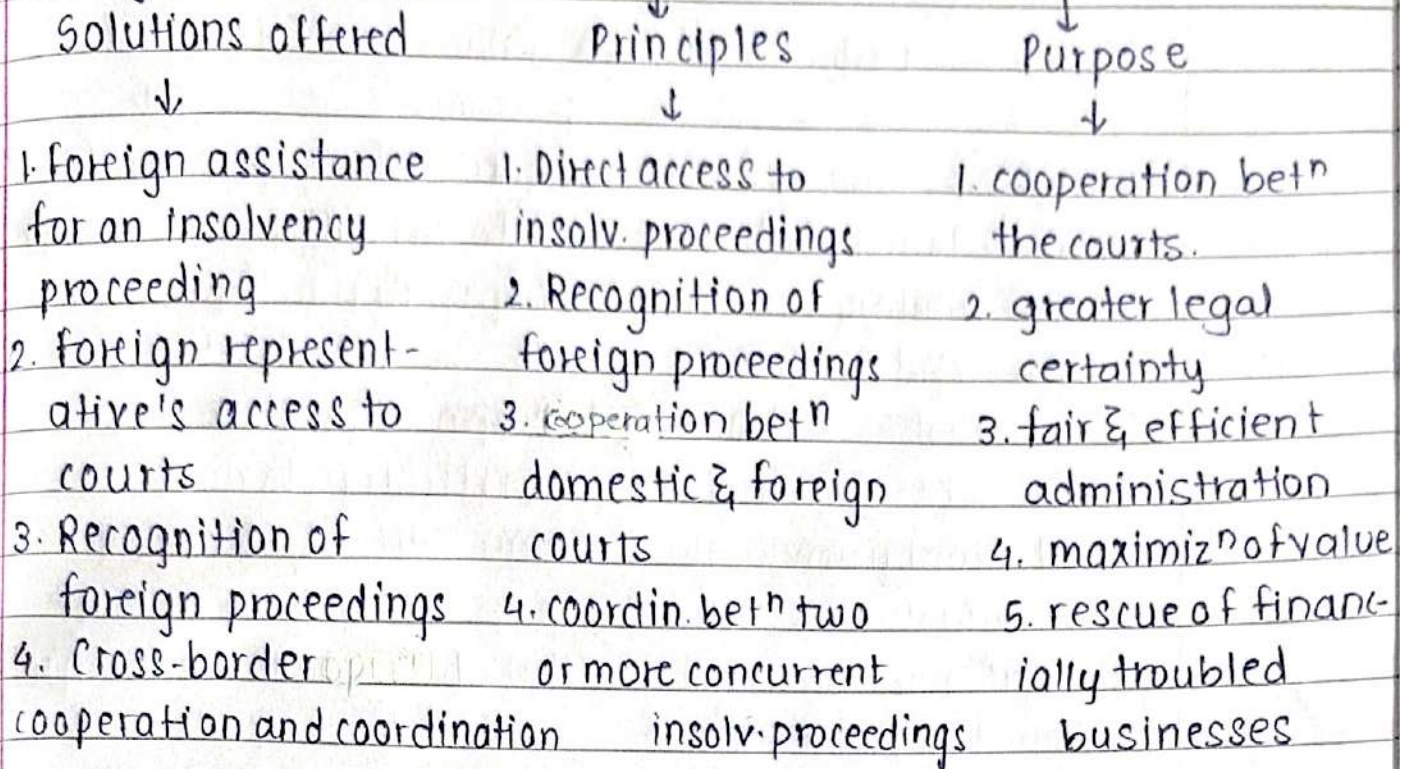 Solutions offered
↓
1. foreign assistance
for an insolvency
proceeding
2. foreign represent-
ative's access to
courts
3. Recognition of
foreign proceedings
4. Cross-border
cooperation and coordination
Principles
↓
1. Direct access to
insolv. proceedings
2. Recognition of
foreign proceedings
3. cooperation betⁿ
domestic & foreign
courts
4. coordin. betⁿ two
or more concurrent
insolv. proceedings
Purpose
↓
1. cooperation betⁿ
the courts.
2. greater legal
certainty
3. fair & efficient
administration
4. maximizⁿ of value
5. rescue of financ-
ially troubled
businesses